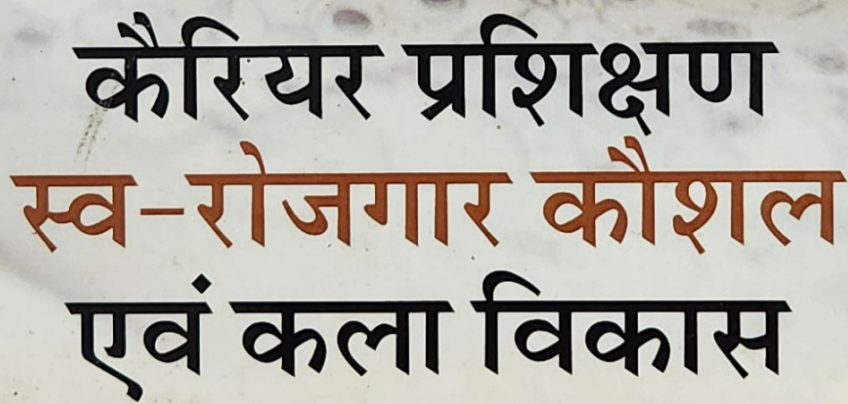 कैरियर प्रशिक्षण
स्व-रोजगार कौशल
एवं कला विकास